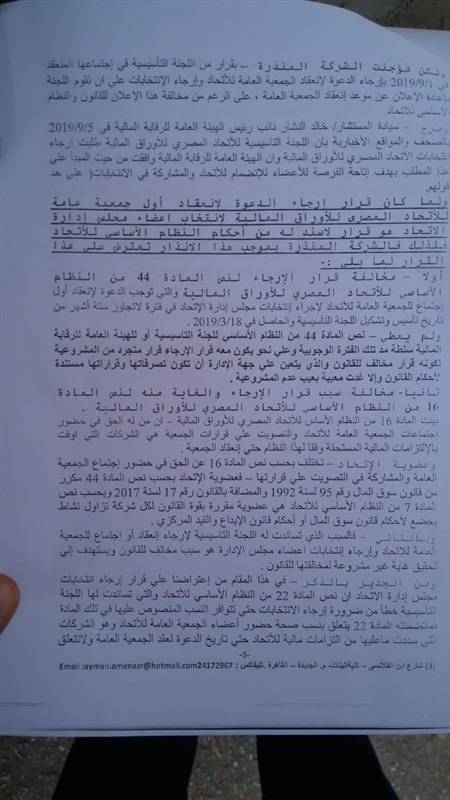 ولكن فوجئت الشركة المنذرة – بقرار من اللجنة التأسيسية في إجتماعها المنعقد
في 2019/9/1 بإرجاء الدعوة لإنعقاد الجمعية العامة للأتحاد وإجراء الإنتخابات علي ان تقوم اللجنة
بإعادة الإعلان عن موعد إنعقاد الجمعية العامة ، على الرغم من مخالفة هذا الإعلان للقانون والنظام
الأساسى للأتحاد.
وصرح – سيادة المستشار/ خالد النشار نائب رئيس الهيئة العامة للرقابة المالية في 2019/9/5
بالصحف والمواقع الأخبارية بان اللجنة التأسيسية للأتحاد المصري للأوراق المالية طلبت إرجاء
انتخابات الاتحاد المصري للأوراق المالية وان الهيئة العامة للرقابة المالية وافقت من حيث المبدأ علي
هذا المطلب بهدف إتاحة الفرصة للأعضاء للإنضمام للأتحاد والمشاركة في الانتخابات( علي حد
قولهم.
ولما كان قرار إرجاء الدعوة لانعقاد أول جمعية عامة
للأتحاد المصرى للأوراق المالية لانتخاب اعضاء مجلس إدارة
الاتحاد هو قرار لاسند له من أحكام النظام الأساسي للأتحاد
فلذلك فالشركة المنذرة بموجب هذا الانذار تعترض على هذا
القرار لما يلى :-
أولا – مخالفة قرار الإرجاء لنص المادة 44 من النظام
الأساسي للأتحاد المصرى للأوراق المالية والتي توجب الدعوة لإنعقاد أول
اجتماع للجمعية العامة للأتحاد لأجراء إنتخابات مجلس إدارة الإتحاد في فترة لاتجاوز ستة أشهر من
تاريخ تأسيس وتشكيل اللجنة التأسيسية والحاصل في 2019/3/18.
ولم يعطي – نص المادة 44 من النظام الأساسي للجنة التاسيسية أو للهيئة العامة للرقابة
المالية سلطة مد تلك الفترة الوجوبية وعلي نحو يكون معه قرار الإرجاء قرار متجرد من المشروعية
لكونه قرار مخالف للقانون والذي يتعين علي جهة الإدارة أن تكون تصرفاتها وقراراتها مستندة
لأحكام القانون وإلا غدت معيبة بعيب عدم المشروعية .
ثانيا- مخالفة سبب قرار الإرجاء والغاية منه لنص المادة
16 من النظام الأساسي للأتحاد المصرى للأوراق المالية .
بينت المادة 16 من النظام الأساس للأتحاد المصري للأوراق المالية – ان من له الحق في حضور
إجتماعات الجمعية العامة للأتحاد والتصويت علي قرارات الجمعية هي الشركات التي اوفت
بالإلتزامات المالية المستحقة وفقا لهذا النظام حتي إنعقاد الجمعية.
وعضوية الإتحاد – تختلف بحسب نص المادة 16 عن الحق في حضور إجتماع الجمعية
العامة والمشاركة في التصويت علي قرارتها – فعضوية الإتحاد بحسب نص المادة 44 مكرر
من قانون سوق المال رقم 95 لسنة 1992 والمضافة بالقانون رقم 17 لسنة 2017 وبحسب نص
المادة 7 من النظام الأساسي للأتحاد هي عضوية مقررة بقوة القانون لكل شركة تزاول نشاط
يخضع لأحكام قانون سوق المال أو أحكام قانون الإيداع والقيد المركزي .
وبالتالي – فالسبب الذي تساندت له اللجنة التاسيسية لإرجاء إنعقاد أو إجتماع للجمعية
العامة للأتحاد وإرجاء إنتخابات أعضاء مجلس الإدارة هو سبب مخالف للقانون ويستهدف إلي
تحقيق غاية غير مشروعة لمخالفتها للقانون .
ومن الجدير بالذكر – في هذا المقام من إعتراضنا علي قرار إرجاء انتخابات
مجلس إدارة الاتحاد ان نص المادة 22 من النظام الأساسي للأتحاد والتي تساندت لها اللجنة
التأسيسية خطأ من ضرورة إرجاء الانتخابات حتي تتوافر النسب المنصوص عليها في تلك المادة
فماتضمنته المادة 22 يتعلق بنسب صحة حضور أعضاء الجمعية العامة للأتحاد وهو الشركات
التي سددت ماعليها من التزامات مالية للأتحاد حتي تاريخ الدعوة لعقد الجمعية العامة ولاتتعلق
-3-
(3) شارع ابن القلانسى – كليةالبنات- م. الجديدة – القاهرة ,تليفاكس : 24172967 Email :ayman.amenazr@hotmail.com